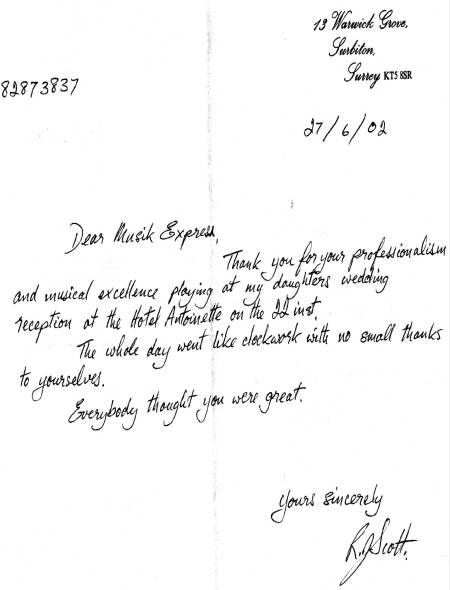 13 Warwick Grove,
Surbiton,
Surrey KT5 8SR
82873837
27/6/02
Dear Musik Express,
Thank you for your professionalism
and musical excellence playing at my daughters wedding
reception at the Hotel Antoinette on the 22 inst.
The whole day went like clockwork with no small thanks
to yourselves.
Everybody thought you were great.
Yours sincerely
R.J Scott.